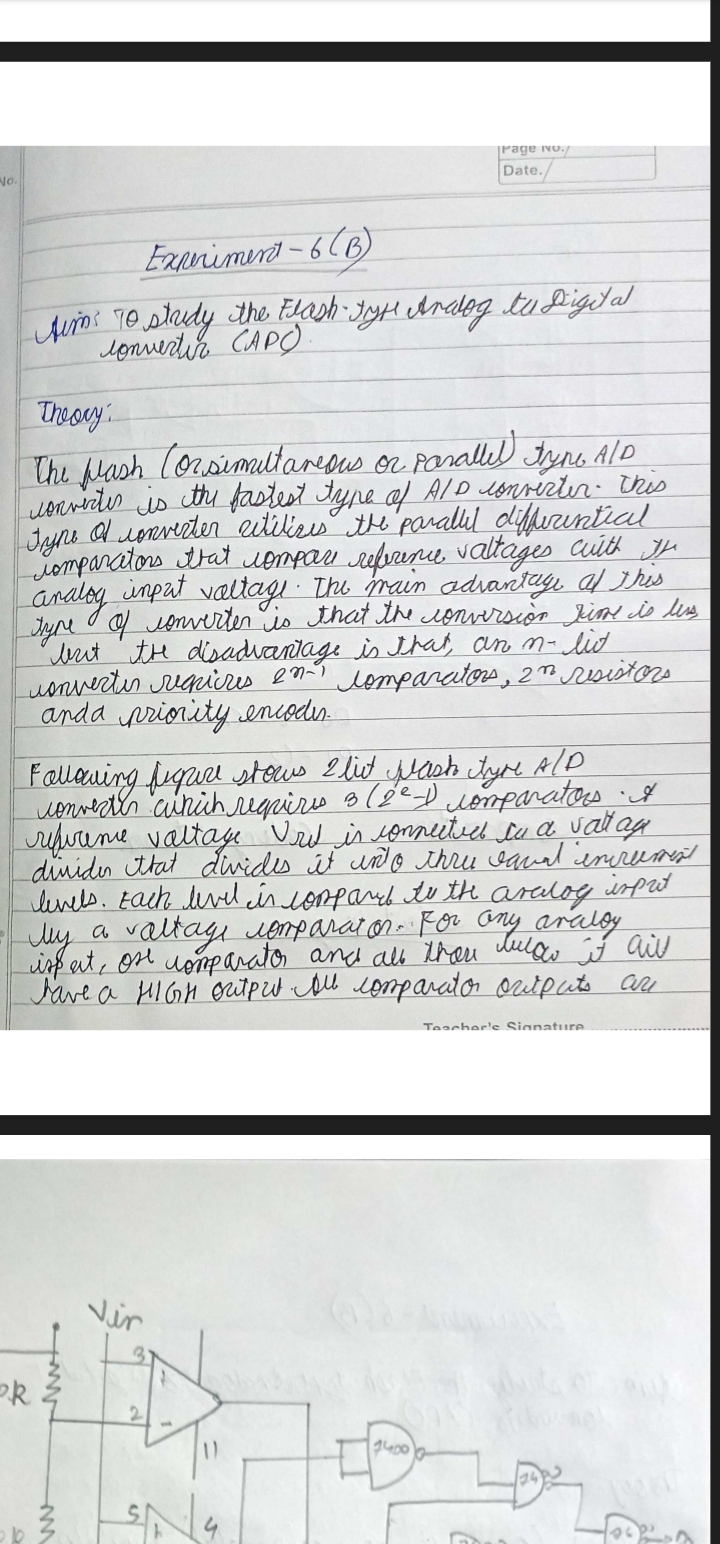 Page No./
No.
Date./
Experiment - 6 (B)
Aim: To study the Flash-type Analog to Digital
converter (ADC).
Theory:
The flash (or simultaneous or parallel) type A/D
converter is the fastest type of A/D converter. This
type of converter utilizes the parallel differential
comparators that compare reference voltages with the
analog input voltage. The main advantage of this
type of converter is that the conversion time is less
but the disadvantage is that, an n-bit
converter requires 2n-1 comparators, 2n resistors
and a priority encoder.
Following figure shows 2 bit flash type A/D
converter which requires 3 (2²-1) comparators. A
reference voltage Vref is connected to a voltage
divider that divides it into three equal increment
levels. Each level is compared to the analog input
by a voltage comparator. For any analog
input, one comparator and all those below it will
have a HIGH output. All comparator outputs are
Teacher's Signature
Vin
3
+
2
-
11
7400
74
5
4